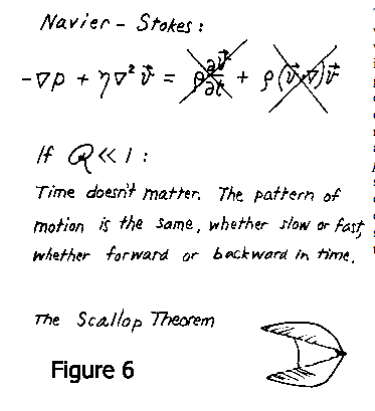 Navier - Stokes:
-∇p + η∇² v⃗ = ρ ∂v⃗/∂t + ρ(v⃗·∇)v⃗
If R ≪ 1:
Time doesn't matter. The pattern of
motion is the same, whether slow or fast,
whether forward or backward in time.
The Scallop Theorem
Figure 6